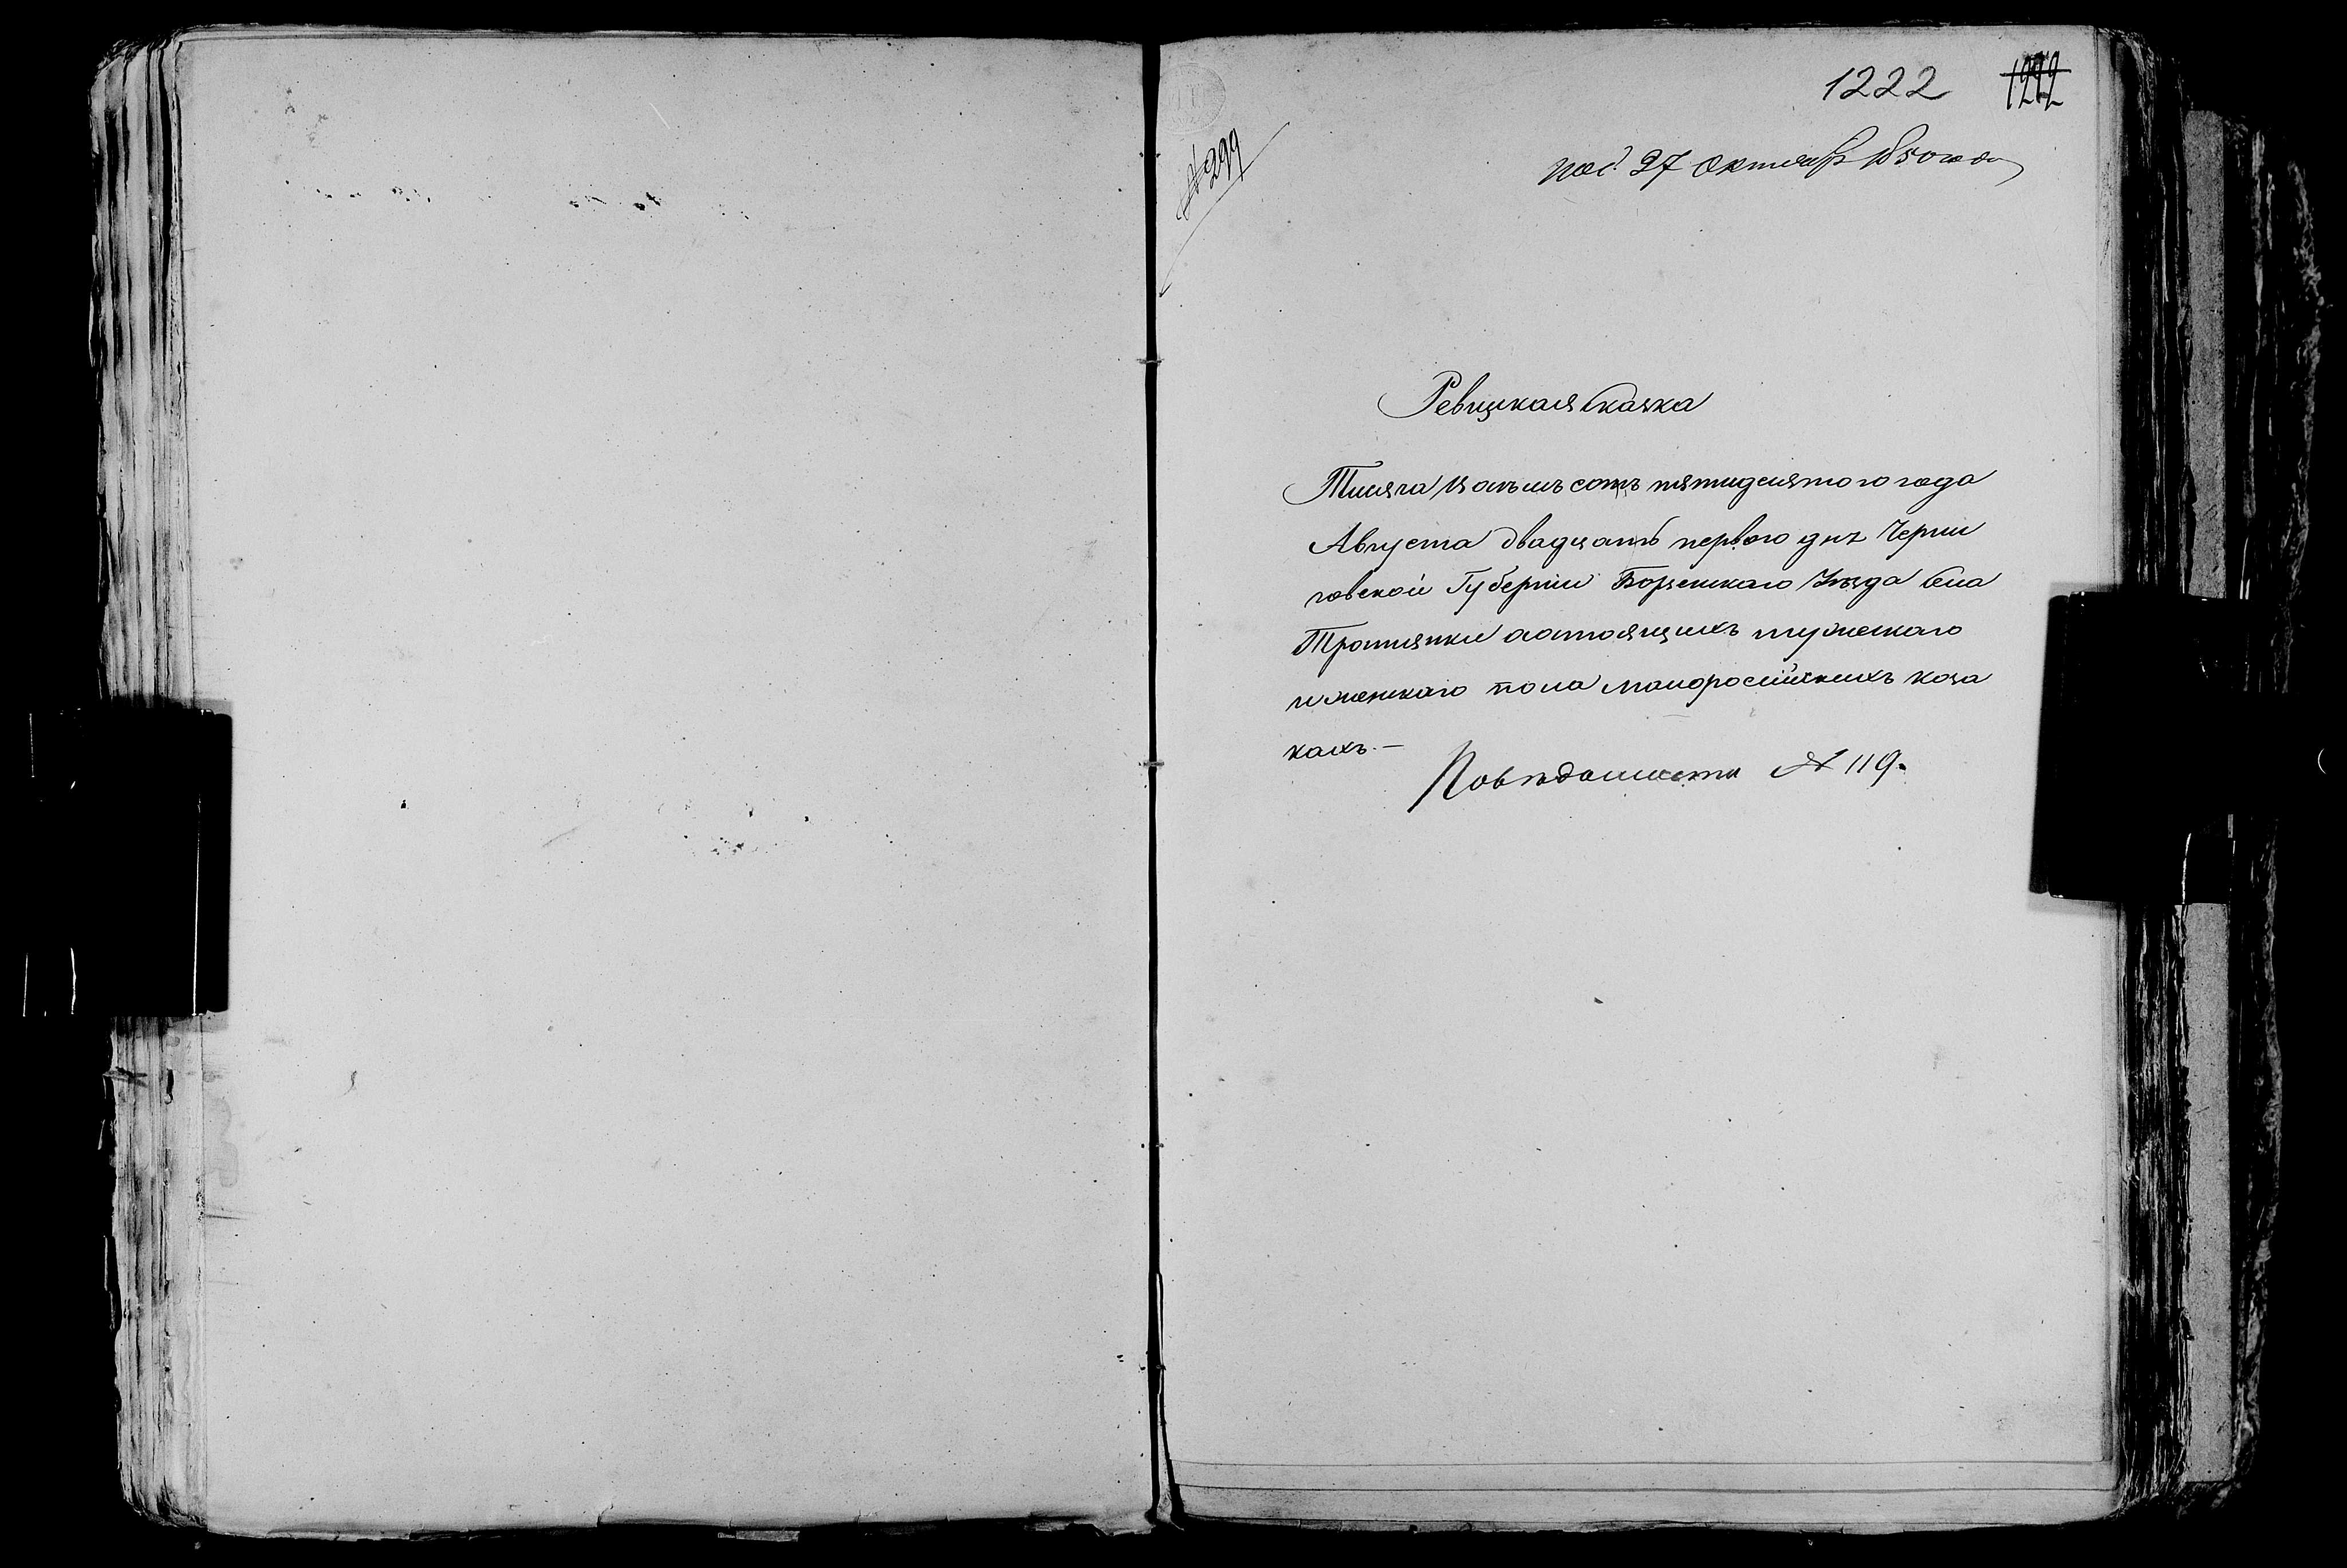 1222 1222
№ 299
под. 27 октября 1850 года
Ревизская сказка
Тисяча восемъ сотъ пятидесятого года
Августа двадцать первого дня Черни
говской Губернии Борзенскаго Уезда села
Тростянки состоящихъ мужескаго
и женскаго пола малоросийскихъ коза
кахъ.—
По ведомости № 119.